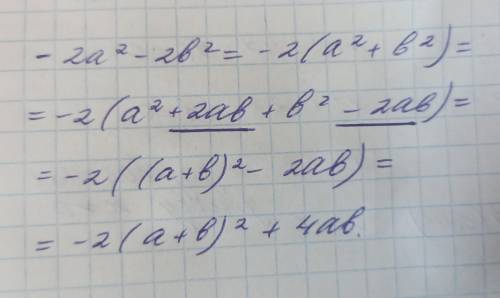 - 2a² - 2b² = -2(a² + b²) =
= -2(a² + 2ab + b² - 2ab) =
= -2((a+b)² - 2ab) =
= -2(a+b)² + 4ab.